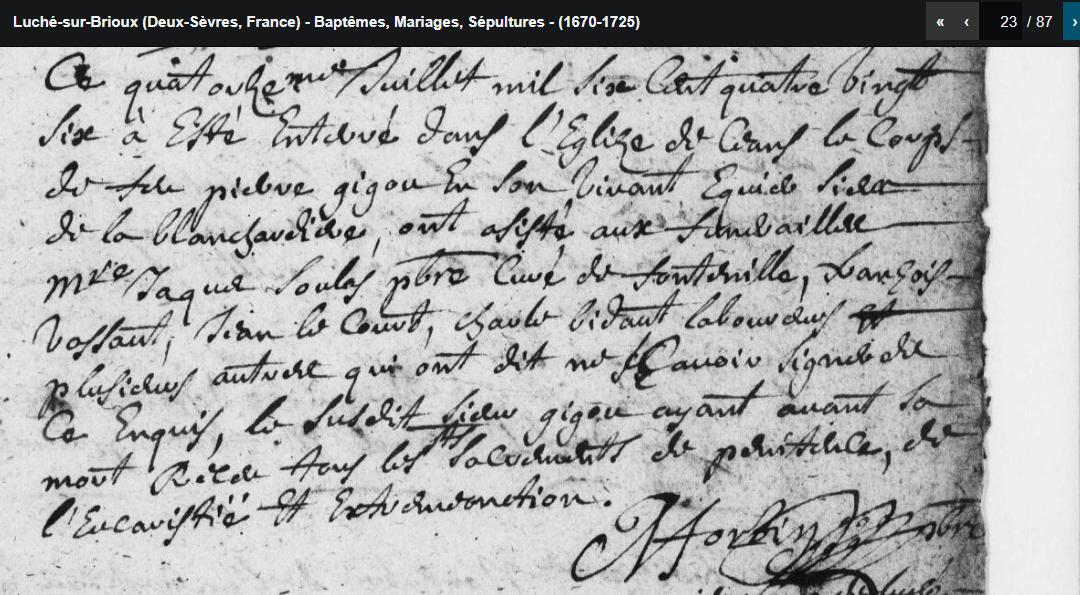 Luché-sur-Brioux (Deux-Sèvres, France) - Baptêmes, Mariages, Sépultures - (1670-1725)
« ‹ 23 / 87 ›
Ce quatorzeme Juillet mil six Cent quatre vingt
six à Esté Enterré dans l'Eglize de Ceans le Corps
de feu pierre gigou En son Vivant Sieur
de la blanchardiere, ont asisté aux funerailles
mre Jaque Soulas pbre Curé de fontenille, François
Vossant, Jean le Court, charle bidaut laboureurs et
plusieurs autres qui ont dit ne sCavoir signer de
Ce Enquis, le susdit sieur gigou ayant avant sa
mort Receu tous les sacrements de penitence, de
l'Eucaristie Et Extremeonction.
pbre